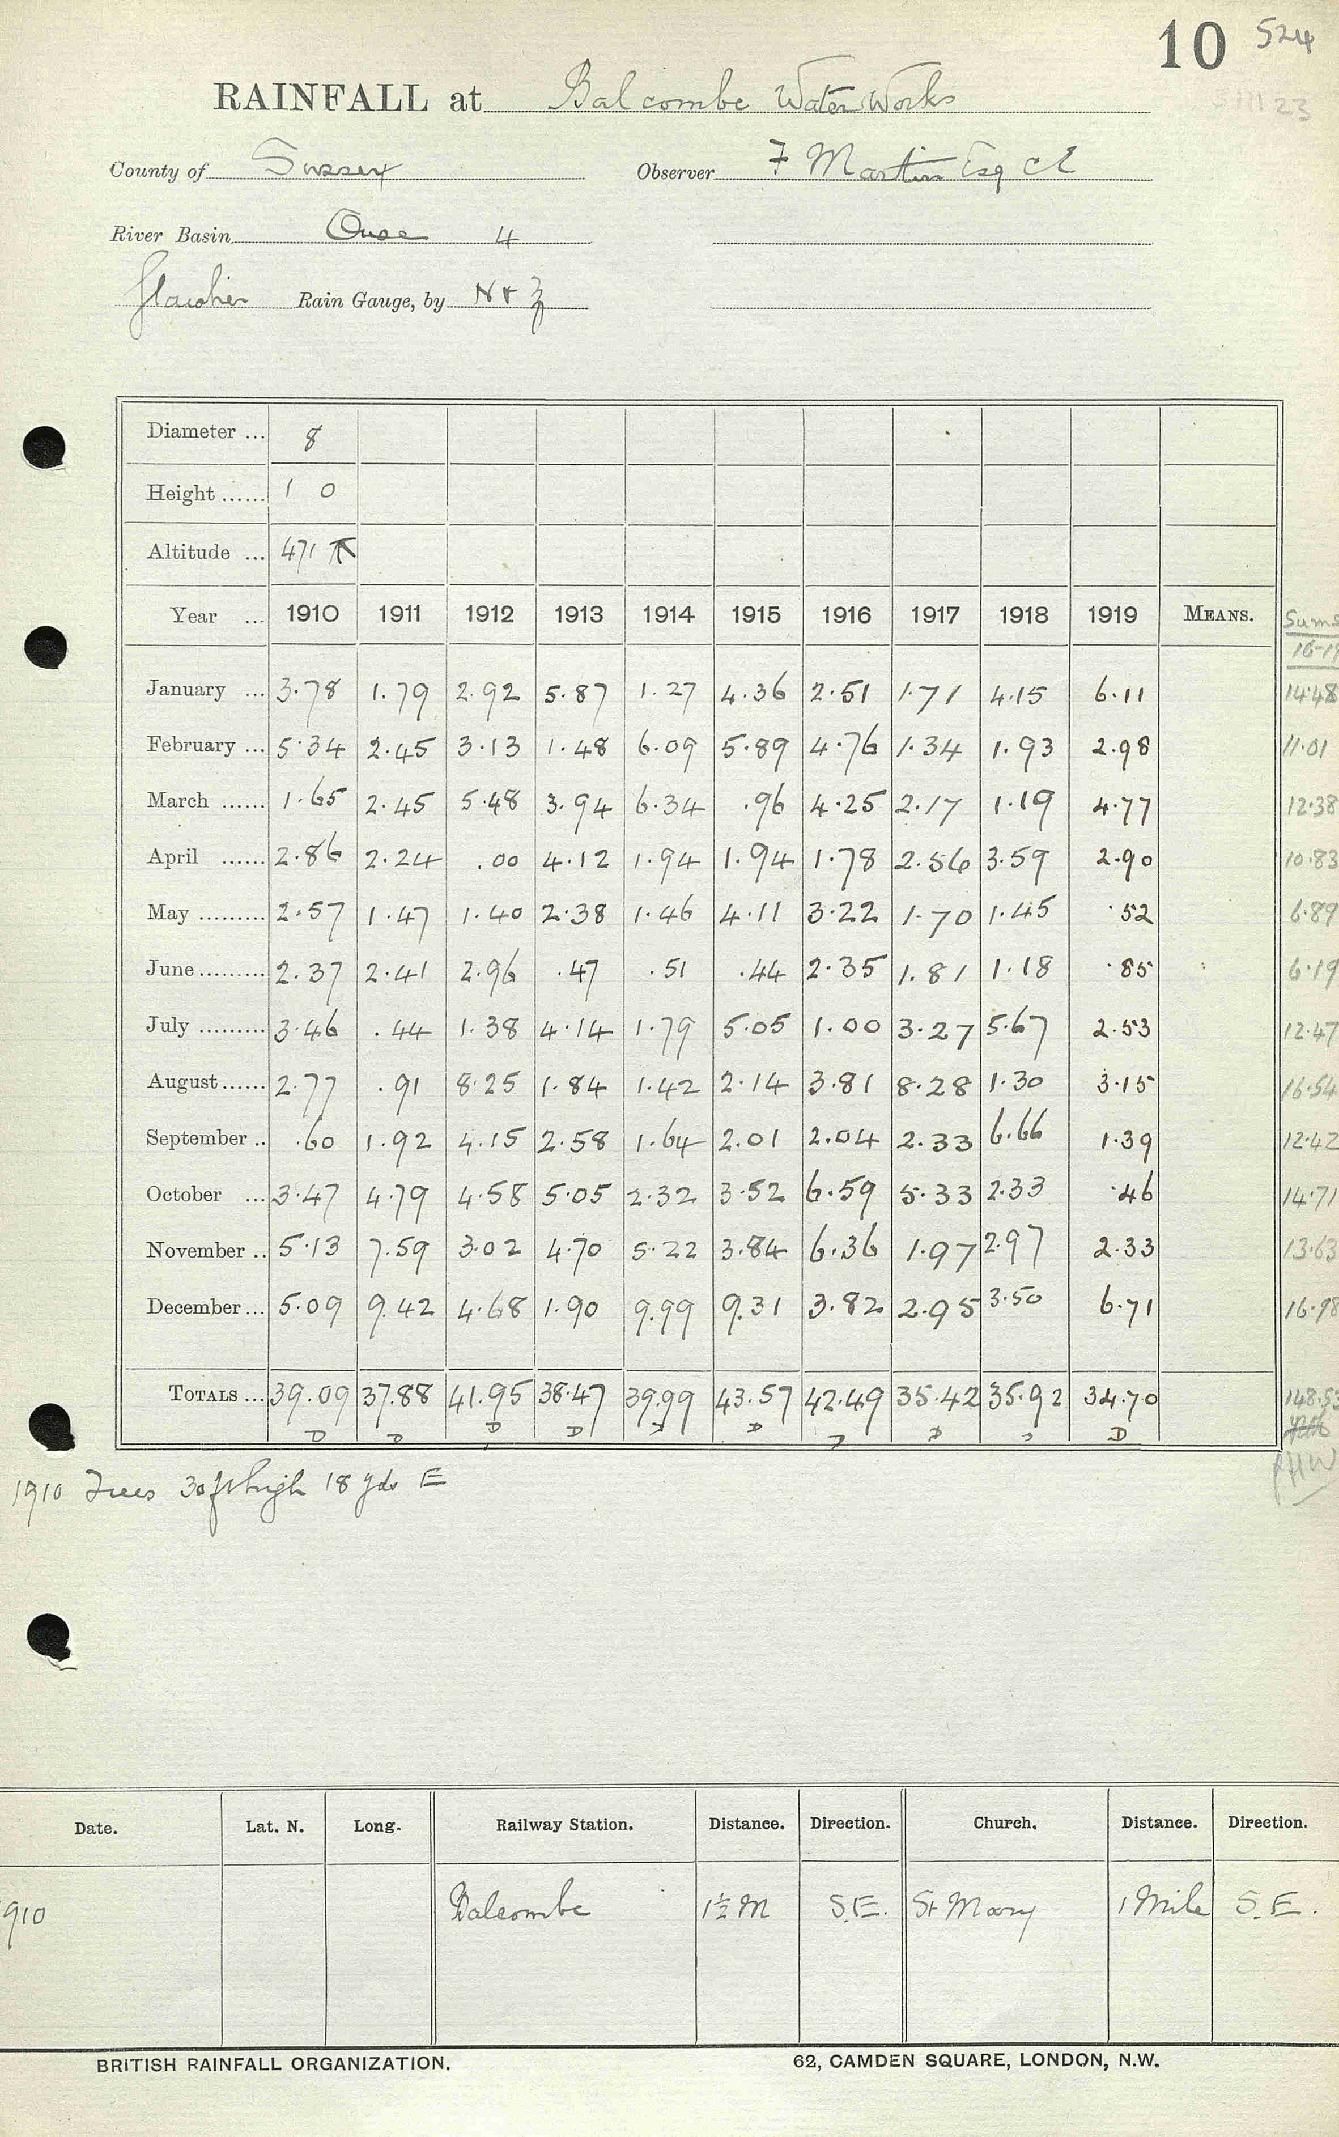 10 524
RAINFALL at Balcombe Water Works
County of Sussex Observer F Martin Esq CE
River Basin Ouse 4
Glaisher Rain Gauge, by N & Z
Diameter ... 8
Height ...... 1 0
Altitude ... 471
Year ... 1910 1911 1912 1913 1914 1915 1916 1917 1918 1919 MEANS. Sums
16-19
January ... 3.78 1.79 2.92 5.87 1.27 4.36 2.51 1.71 4.15 6.11 14.48
February ... 5.34 2.45 3.13 1.48 6.09 5.89 4.76 1.34 1.93 2.98 11.01
March ...... 1.65 2.45 5.48 3.94 6.34 .96 4.25 2.17 1.19 4.77 12.38
April ...... 2.86 2.24 .00 4.12 1.94 1.94 1.78 2.56 3.59 2.90 10.83
May ......... 2.57 1.47 1.40 2.38 1.46 4.11 3.22 1.70 1.45 .52 6.89
June ......... 2.37 2.41 2.96 .47 .51 .44 2.35 1.81 1.18 .85 6.19
July ......... 3.46 .44 1.38 4.14 1.79 5.05 1.00 3.27 5.67 2.53 12.47
August ...... 2.77 .91 8.25 1.84 1.42 2.14 3.81 8.28 1.30 3.15 16.54
September .. .60 1.92 4.15 2.58 1.64 2.01 2.04 2.33 6.66 1.39 12.42
October ... 3.47 4.79 4.58 5.05 2.32 3.52 6.59 5.33 2.33 .46 14.71
November .. 5.13 7.59 3.02 4.70 5.22 3.84 6.36 1.97 2.97 2.33 13.63
December ... 5.09 9.42 4.68 1.90 9.99 9.31 3.82 2.95 3.50 6.71 16.98
TOTALS ... 39.09 37.88 41.95 38.47 39.99 43.57 42.49 35.42 35.92 34.70 148.53
D D D D D D D D D D
PHW
1910 Trees 30ft high 18 yds E
Date. Lat. N. Long. Railway Station. Distance. Direction. Church. Distance. Direction.
910 Balcombe 1½ M S.E. St Mary 1 Mile S.E.
BRITISH RAINFALL ORGANIZATION. 62, CAMDEN SQUARE, LONDON, N.W.